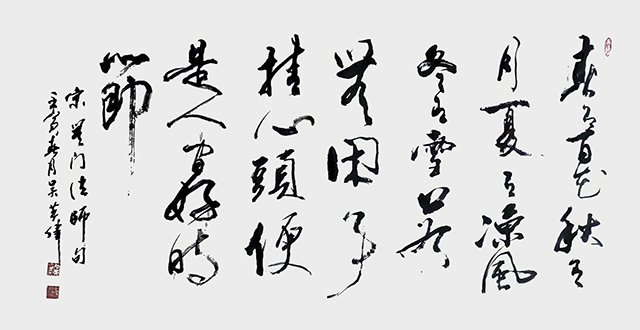 春有百花秋有
月夏有涼風
冬有雪若
無閑事
挂心頭便
是人间好時
節
宋無门法師句
春月吴